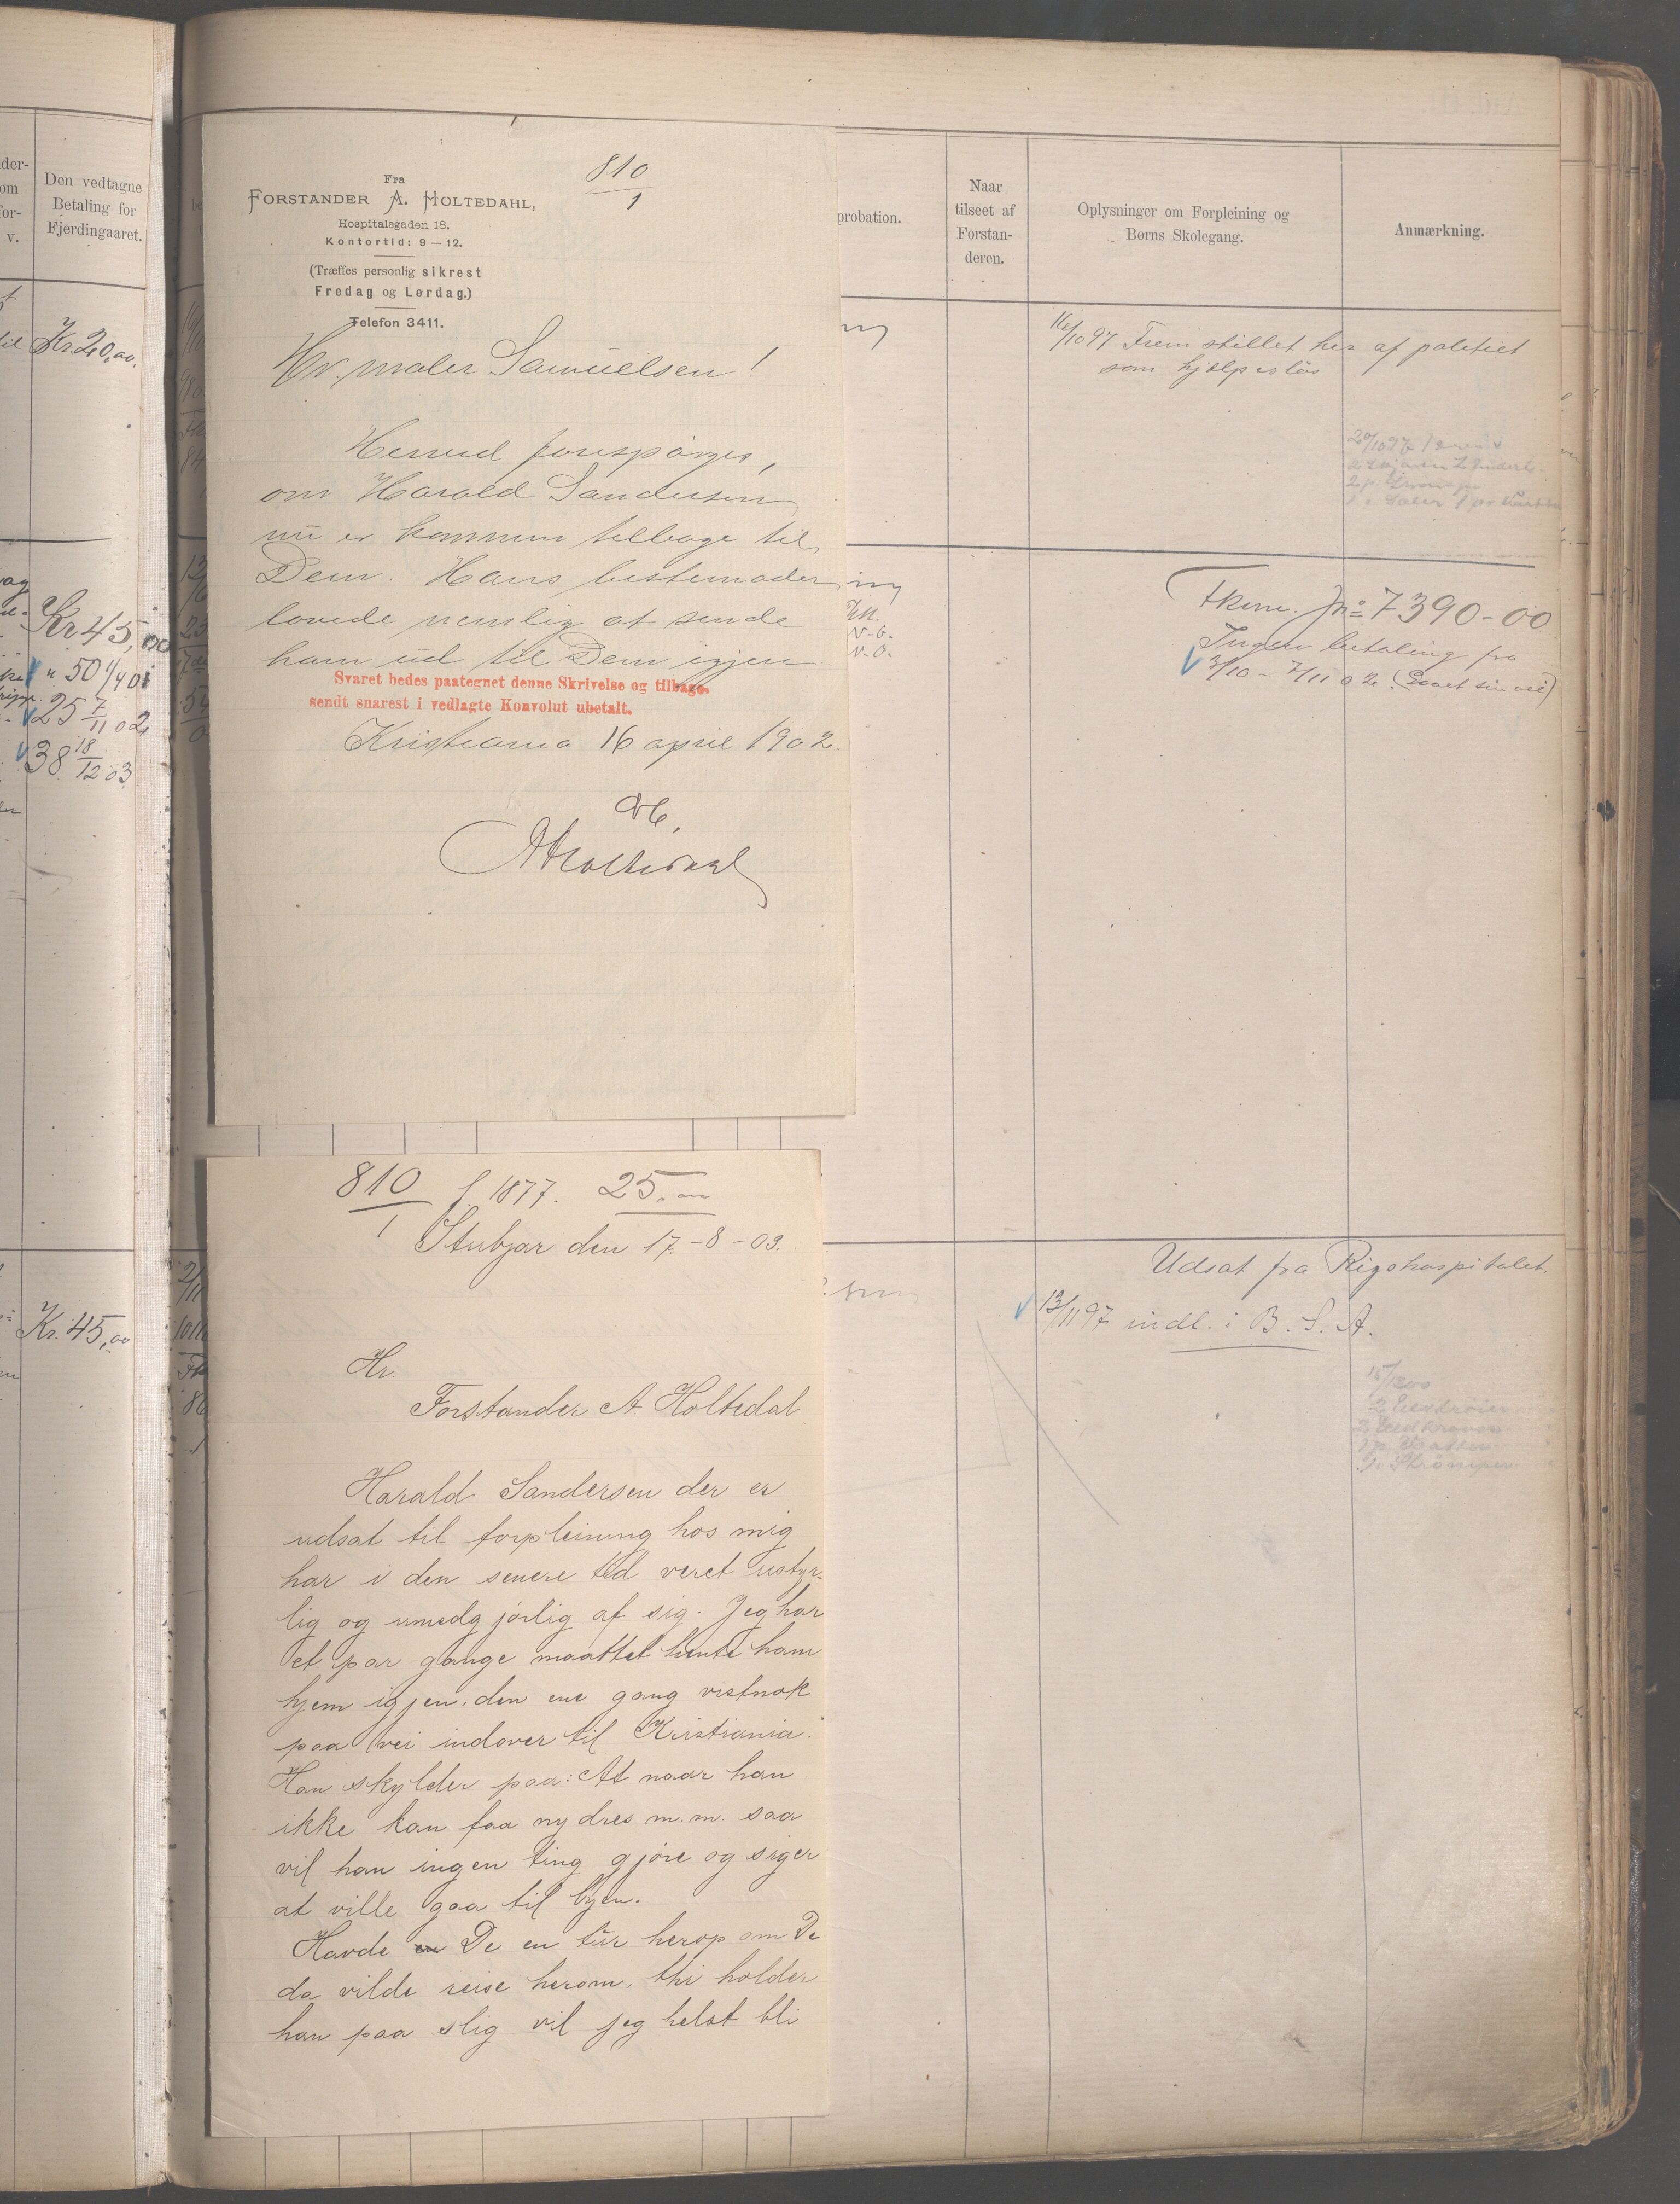 Den vedtagne
Betaling for
Fjerdingaaret.
Kr. 20,00.
Kr 45,00
" 50 1/4 01
25 7/11 02
38 18/12 03
Kr. 45,00
810
1
Fra
FORSTANDER A. HOLTEDAHL,
Hospitalsgaden 18.
Kontortid: 9 — 12.
(Træffes personlig sikrest
Fredag og Lørdag.)
Telefon 3411.
Hr. maler Samuelsen!
Herved forespørges,
om Harald Sandersen
nu er kommen tilbage til
Dem. Hans bestemoder
lovede nemlig at sende
ham ud til Dem igjen
Svaret bedes paategnet denne Skrivelse og tilbage-
sendt snarest i vedlagte Konvolut ubetalt.
Kristiania 16 april 1902.
AHoltedahl
810
1
f. 1877. 25,00
Stubjar den 17.-8-03.
Hr.
Forstander A. Holtedal
Harald Sandersen der er
udsat til forpleining hos mig
har i den senere tid veret ustyr-
lig og umedgjørlig af sig. Jeg har
et par gange maattet hente ham
hjem igjen. den ene gang vistnok
paa vei indover til Kristiania.
Han skylder paa: At naar han
ikke kan faa ny dres m.m. saa
vil han ingen ting gjøre og siger
at ville gaa til byen.
Havde De en tur herop om De
da vilde reise herom. thi holder
han paa slig vil jeg helst bli
probation.
Naar
tilseet af
Forstan-
deren.
Oplysninger om Forpleining og
Børns Skolegang.
Anmærkning.
16/10 97 Fremstillet her af politiet
som hjælpesløs
Fkom. Jno 7390-00
Ingen betaling fra
3/10 - 7/11 02. (Gaaet sin vei)
Udsat fra Rigshospitalet.
13/11 97 indl. i B. S. A.